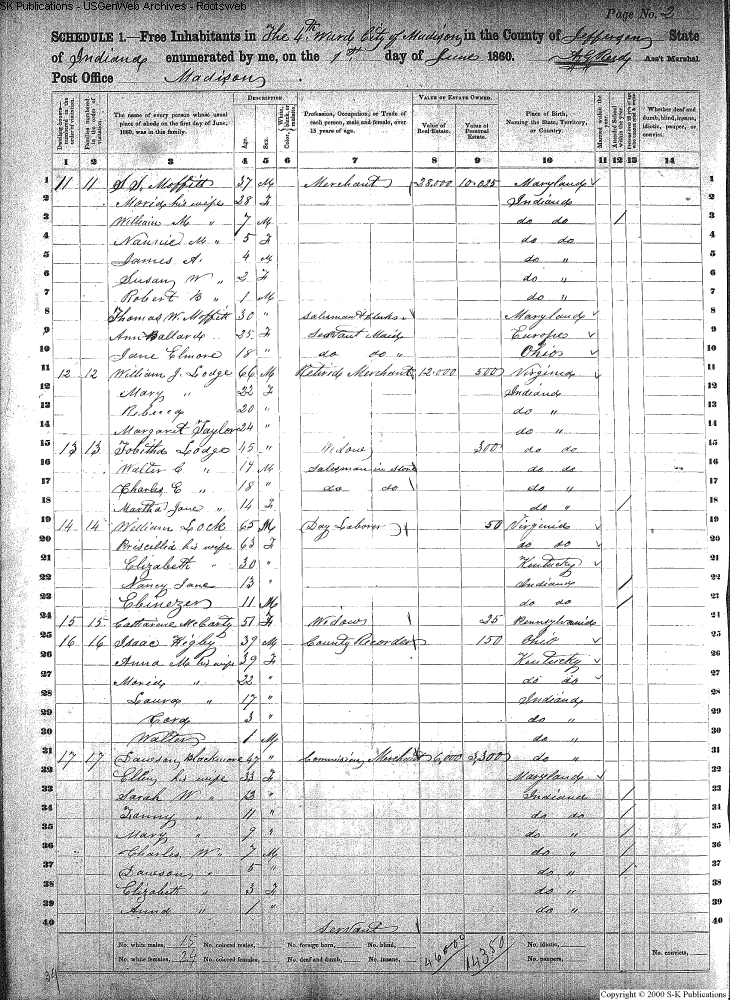 SK Publications - USGenWeb Archives - Rootsweb
Page No. 2
SCHEDULE 1.—Free Inhabitants in The 4th Ward City of Madison, in the County of Jefferson State
of Indiana enumerated by me, on the 1st day of June 1860. Ass't Marshal.
Post Office Madison
DESCRIPTION. VALUE OF ESTATE OWNED.
The name of every person whose usual place of abode on the first day of June, 1860, was in this family.
Age. Sex.
Profession, Occupation, or Trade of each person, male and female, over 15 years of age.
Value of Real Estate. Value of Personal Estate.
Place of Birth, Naming the State, Territory, or Country.
Whether deaf and dumb, blind, insane, idiotic, pauper, or convict.
1 2 3 4 5 6 7 8 9 10 11 12 13 14
1 11 11 Moffitt 37 M Merchant 28.000 10.025 Maryland 1
2 his wife 28 F Indiana 2
3 William M " 7 M do do / 3
4 Nannie M " 5 F do do 4
5 James A. 4 M do " 5
6 Susan W " 2 F do " 6
7 Robert B " 1 M do " 7
8 Thomas W. Moffitt 30 " Maryland 8
9 Ann Ballard 25 F Servant Maid Europe 9
10 Jane Elmore 18 " do do " Ohio 10
11 12 12 William J. Lodge 66 M Retired Merchant 12.000 500 Virginia 11
12 Mary " 22 F Indiana 12
13 Rebecca 20 " do " 13
14 Margaret Taylor 24 " do " 14
15 13 13 Tobitha Lodge 45 " Widow 300 do do 15
16 Walter C " 19 M Salesman in store do do 16
17 Charles E " 18 " do do do " 17
18 Martha Jane " 14 F do " / 18
19 14 14 William Lock 65 M Day Laborer 50 Virginia 19
20 Priscillia his wife 63 F do do 20
21 Elizabeth " 30 " Kentucky 21
22 Nancy Jane 13 " Indiana / 22
23 Ebinezer 11 M do do / 23
24 15 15 Catharine McCarty 51 F Widow 25 Pennsylvania 24
25 16 16 Isaac Higby 39 M County Recorder 150 Ohio 25
26 Anna M. his wife 39 F Kentucky 26
27 " 22 " do do 27
28 Laura " 17 " Indiana 28
29 Cora 3 " do " 29
30 Walter 1 M do " 30
31 17 17 Dawson Blackmore 47 " Commission Merchant 6,000 3,300 do " 31
32 Ellen his wife 33 F Maryland 32
33 Sarah W " 13 " Indiana / 33
34 Fanny " 11 " do do / 34
35 Mary " 9 " do " / 35
36 Charles W " 7 M do " / 36
37 Dawson " 5 " do " / 37
38 Elizabeth " 3 F do " 38
39 Anna " 1 " do " 39
40 Servant 40
No. white males, 15 No. colored males, No. foreign born, No. blind, 46000 14350 No. idiotic,
No. white females, 24 No. colored females, No. deaf and dumb, No. insane, No. paupers, No. convicts,
Copyright © 2000 S-K Publications